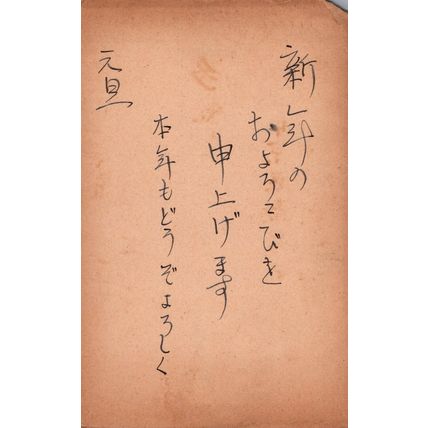 新年の
およろこびを
申上げます
本年もどうぞよろしく
元旦